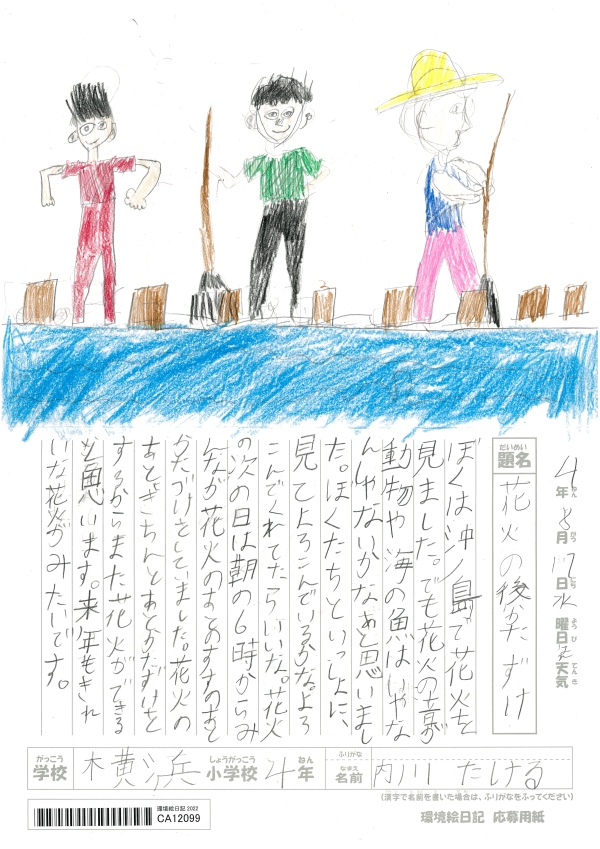 4年8月17日水曜日 天気
ねん がつ にち ようび てんき
だいめい
題名 花火の後かたずけ
ぼくは沖ノ島で花火を
見ました。でも花火の音が
動物や海の魚はいやな
んじゃないかなぁと思いまし
た。ぼくたちといっしょに、
見てよろこんでいるかな。よろ
こんでくれてたらいいな。花火
の次の日は朝の6時からみ
んなが花火のまとのすすのあと
かたづけをしていました。花火の
あと、きちんとあとかたずけを
するからまた花火ができる
と思います。来年もきれ
いな花火がみたいです。
がっこう しょうがっこう ねん なまえ ふりがな
学校 横浜 小学校 4年 名前 内川 たける
(漢字で名前を書いた場合は、ふりがなをふってください)
環境絵日記 2022
CA12099
環境絵日記 応募用紙